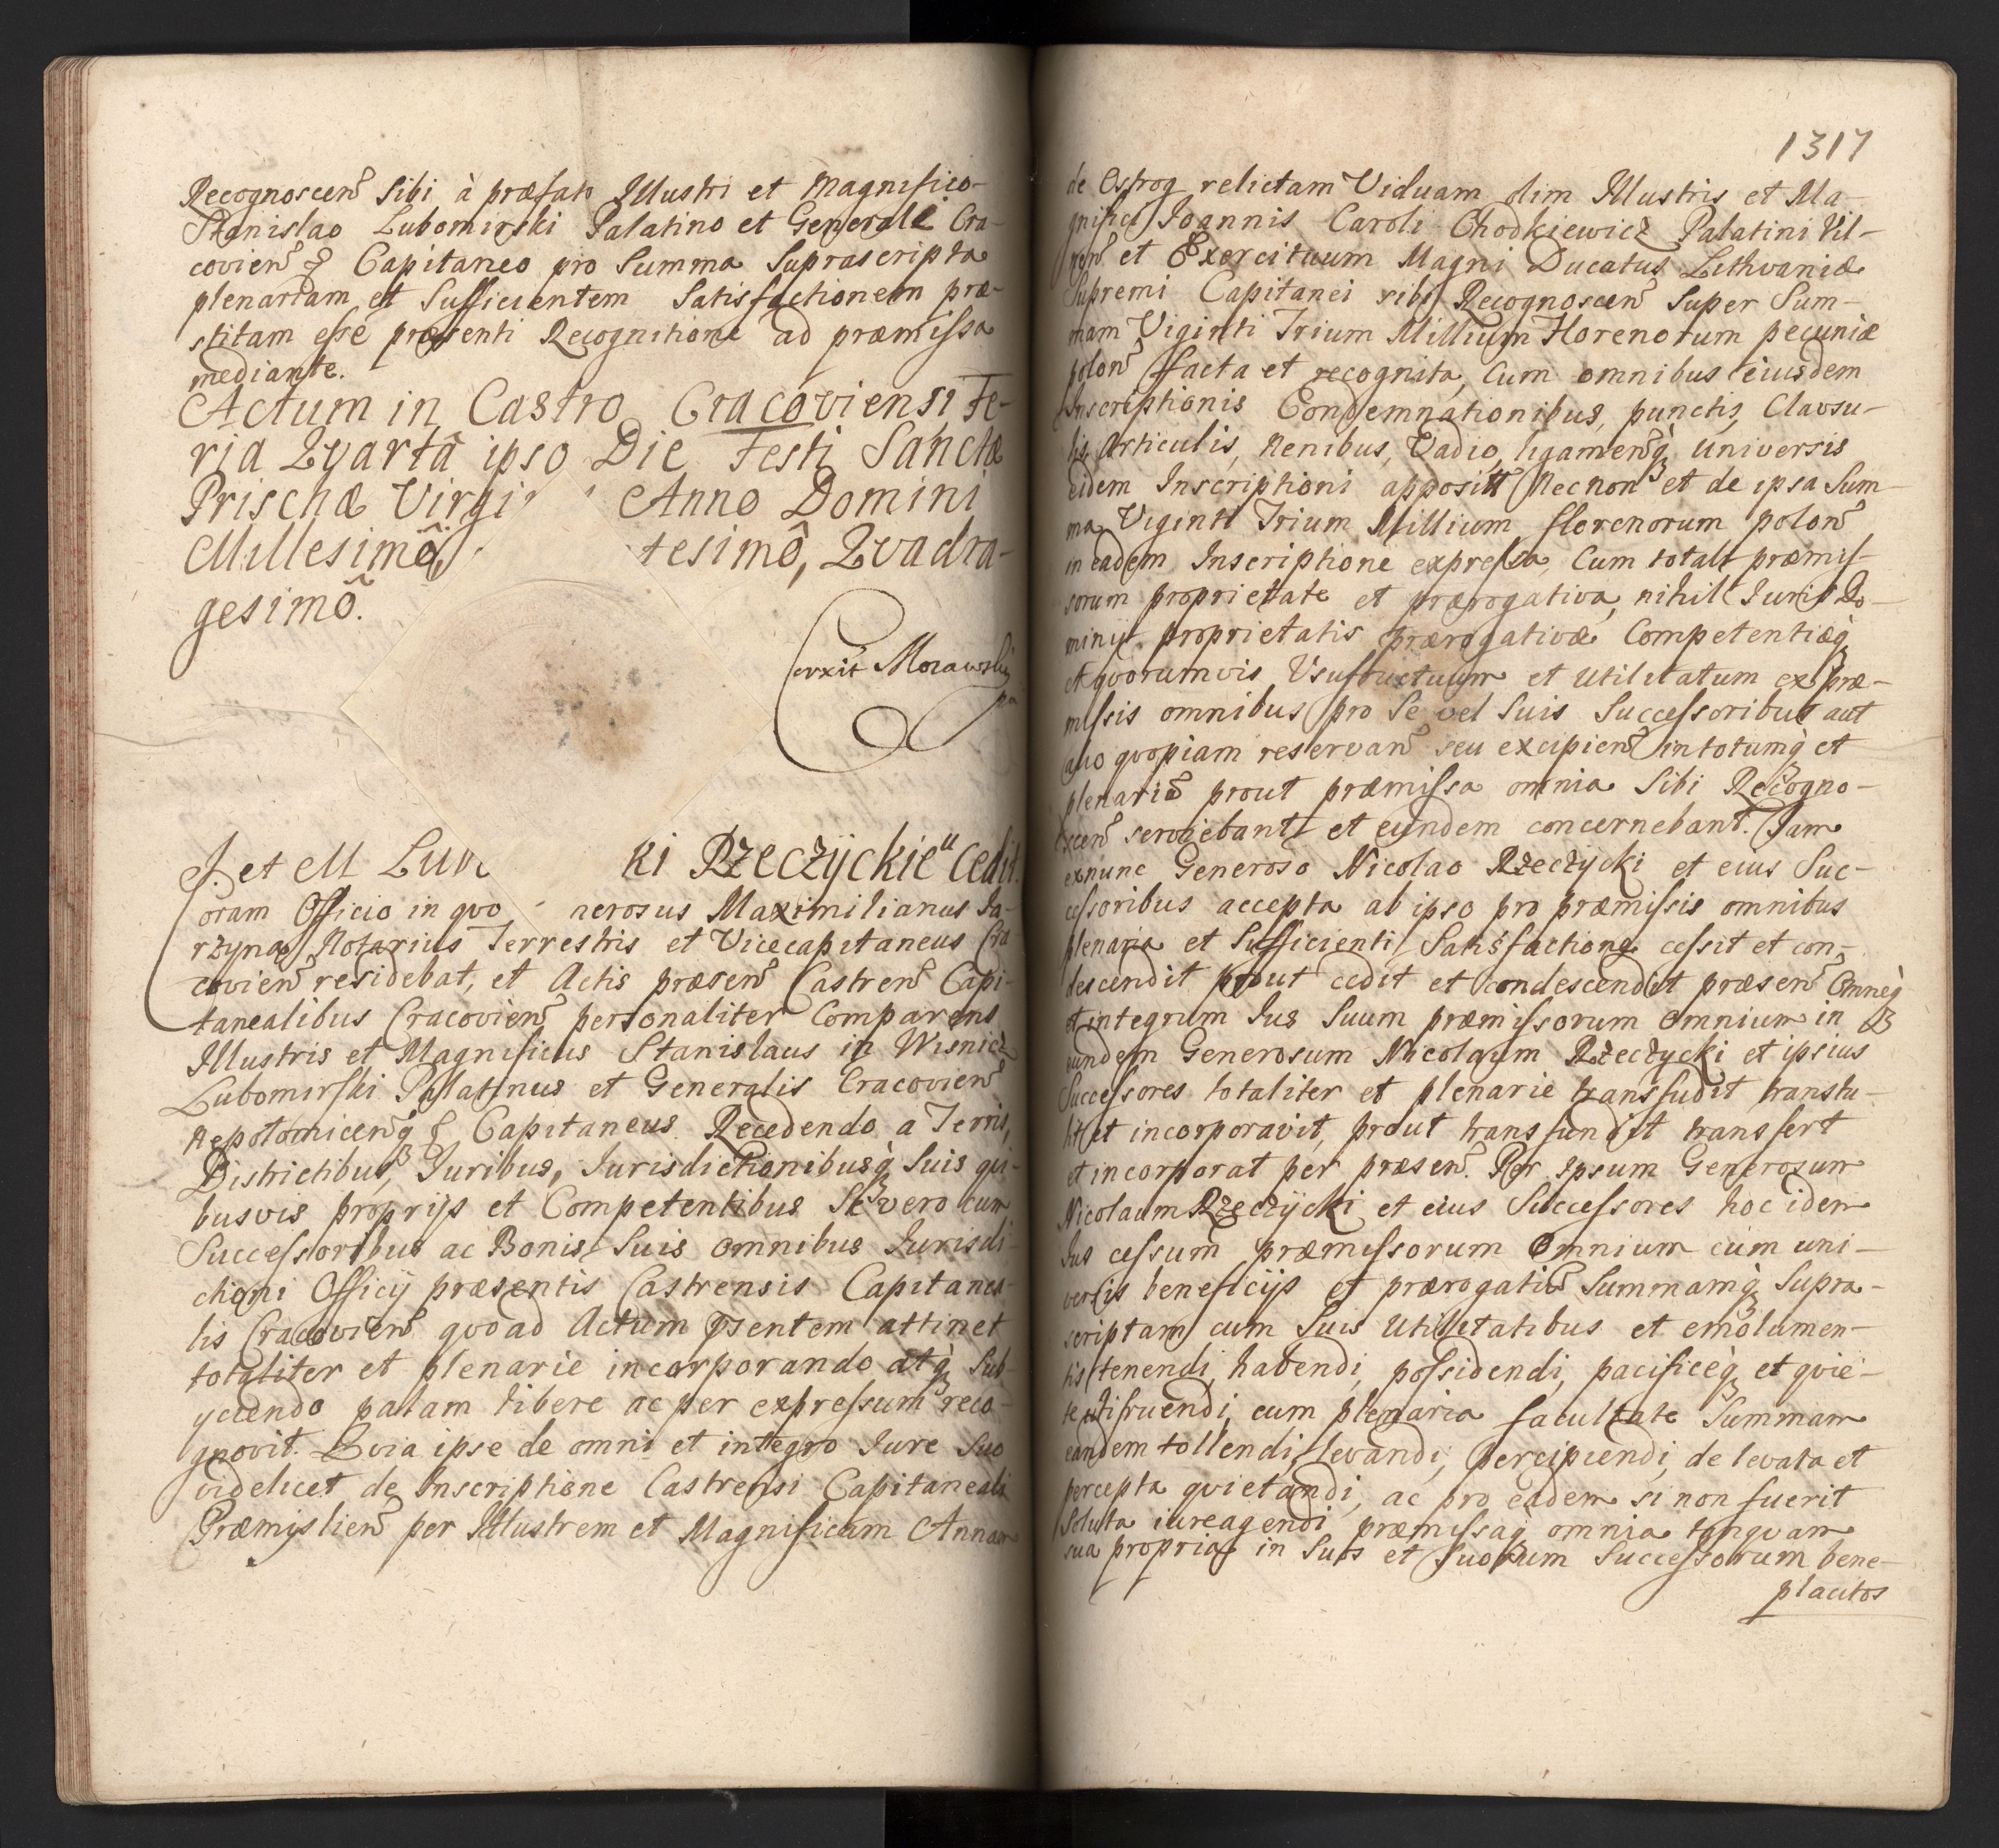 Recognoscen̄ Sibi à præfato Illustri et Magnifico
Stanislao Lubomirski Palatino et Generali Cra-
covien̄ & Capitaneo pro Summa Suprascripta
plenariam et Sufficientem Satisfactionem præ-
stitam esse præsenti Recognitione ad præmissa
mediante.
Actum in Castro Cracoviensi Fe-
ria Qvartâ ipso Die Festi Sanctæ
Priscæ Virgi Anno Domini
Millesimô, tesimô, Qvadra-
gesimô.
Corxit Morawski
J. et M Lub ki Rzeczÿckie" Cedit
oram Officio in qvo nerosus Maximilianus Ja-
rzyna Notarius Terrestris et Vicecapitaneus Cra
covien̄ residebat, et Actis præsen̄ Castren̄ Capi-
tanealibus Cracovien̄ personaliter Comparens
Illustris et Magnificus Stanislaus in Wisnicz
Lubomirski Palatinus et Generalis Cracovien̄
Nepolomicen̄q̃ & Capitaneus Recedendo a Terris,
Districtibus, Iuribus, Iurisdictionibusq̃ Suis qvi-
busvis proprijs et Competentibus Se vero cum
Successoribus ac Bonis Suis omnibus Iurisdi-
ctioni Officij præsentis Castrensis Capitanea-
lis Cracovien̄ qvo ad Actum p̄sentem attinet
totaliter et plenarie incorporando atq̃ Sub-
yciendo palam libere ac per expressum reco-
gnovit. Qvia ipse de omni et integro Iure Suo
videlicet de Inscriptione Castrensi Capitaneali
Præmislien̄ per Illustrem et Magnificam Annam
1317
de Ostrog relictam Viduam olim Illustris et Ma-
gnifici Ioannis Caroli Chodkiewicz Palatini Vil-
nen̄ et Exercituum Magni Ducatus Lithvaniæ
Supremi Capitanei sibi Recognoscen̄ Super Sum-
mam Viginti Trium Millium Florenorum pecuniæ
polon̄ facta et recognita, Cum omnibus eiusdem
Inscriptionis Condemnationibus, punctis, Clavsu-
lis Articulis, Nenibus, Vadio, ligamen̄q̃ universis
eidem Inscriptioni apposit Necnon et de ipsa Sum-
ma Viginti Trium Millium florenorum polon̄
in eadem Inscriptione expressa, Cum totali præmis-
sorum proprietate et prærogativa, nihil Iuris Do-
minij proprietatis prærogativæ Competentiæq̃
et qvorumvis Vsufructuum et utilitatum ex præ-
missis omnibus pro Se vel Suis Successoribus aut
alio qvopiam reservan̄ seu excipien̄ in totumq̃ et
plenariē prout præmissa omnia Sibi Recogno-
scen̄ serviebant et eundem concernebant. Iam
exnunc Generoso Nicolao Rzeczÿcki et eius Suc-
cessoribus accepta ab ipso pro præmissis omnibus
plenaria et Sufficienti Satisfactione cessit et con-
descendit prout cedit et condescendit præsen̄ Omneq̃
et integrum Ius Suum præmissorum omnium in
eundem Generosum Nicolaum Rzeczycki et ipsius
Successores totaliter et plenarie transfudit transtu-
lit et incorporavit, prout transfundit transfert
et incorporat per præsen̄. Per Ipsum Generosum
Nicolaum Rzeczÿcki et eius Successores hoc idem
Ius cessum præmissorum Omnium cum uni-
versis beneficijs et prærogativ̄ Summamq̃ Supra-
scriptam cum Suis Utilitatibus et emolumen-
tis tenendi, habendi, possidendi, pacificeq̃ et qvie-
te utifruendi, cum plenaria facultate Summam
eandem tollendi, levandi, percipiendi, de levata et
percepta qvietandi, ac pro eadem si non fuerit
Soluta iureagendi præmissaq̃ omnia tanqvam
sua propria in Suos et Suorum Successorum bene-
placitos